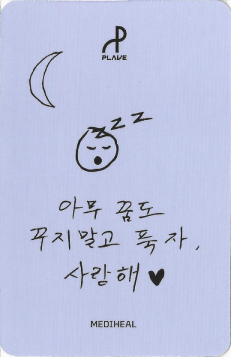 PLAVE
zzz
아무 꿈도
꾸지말고 푹 자,
사랑해♥
MEDIHEAL